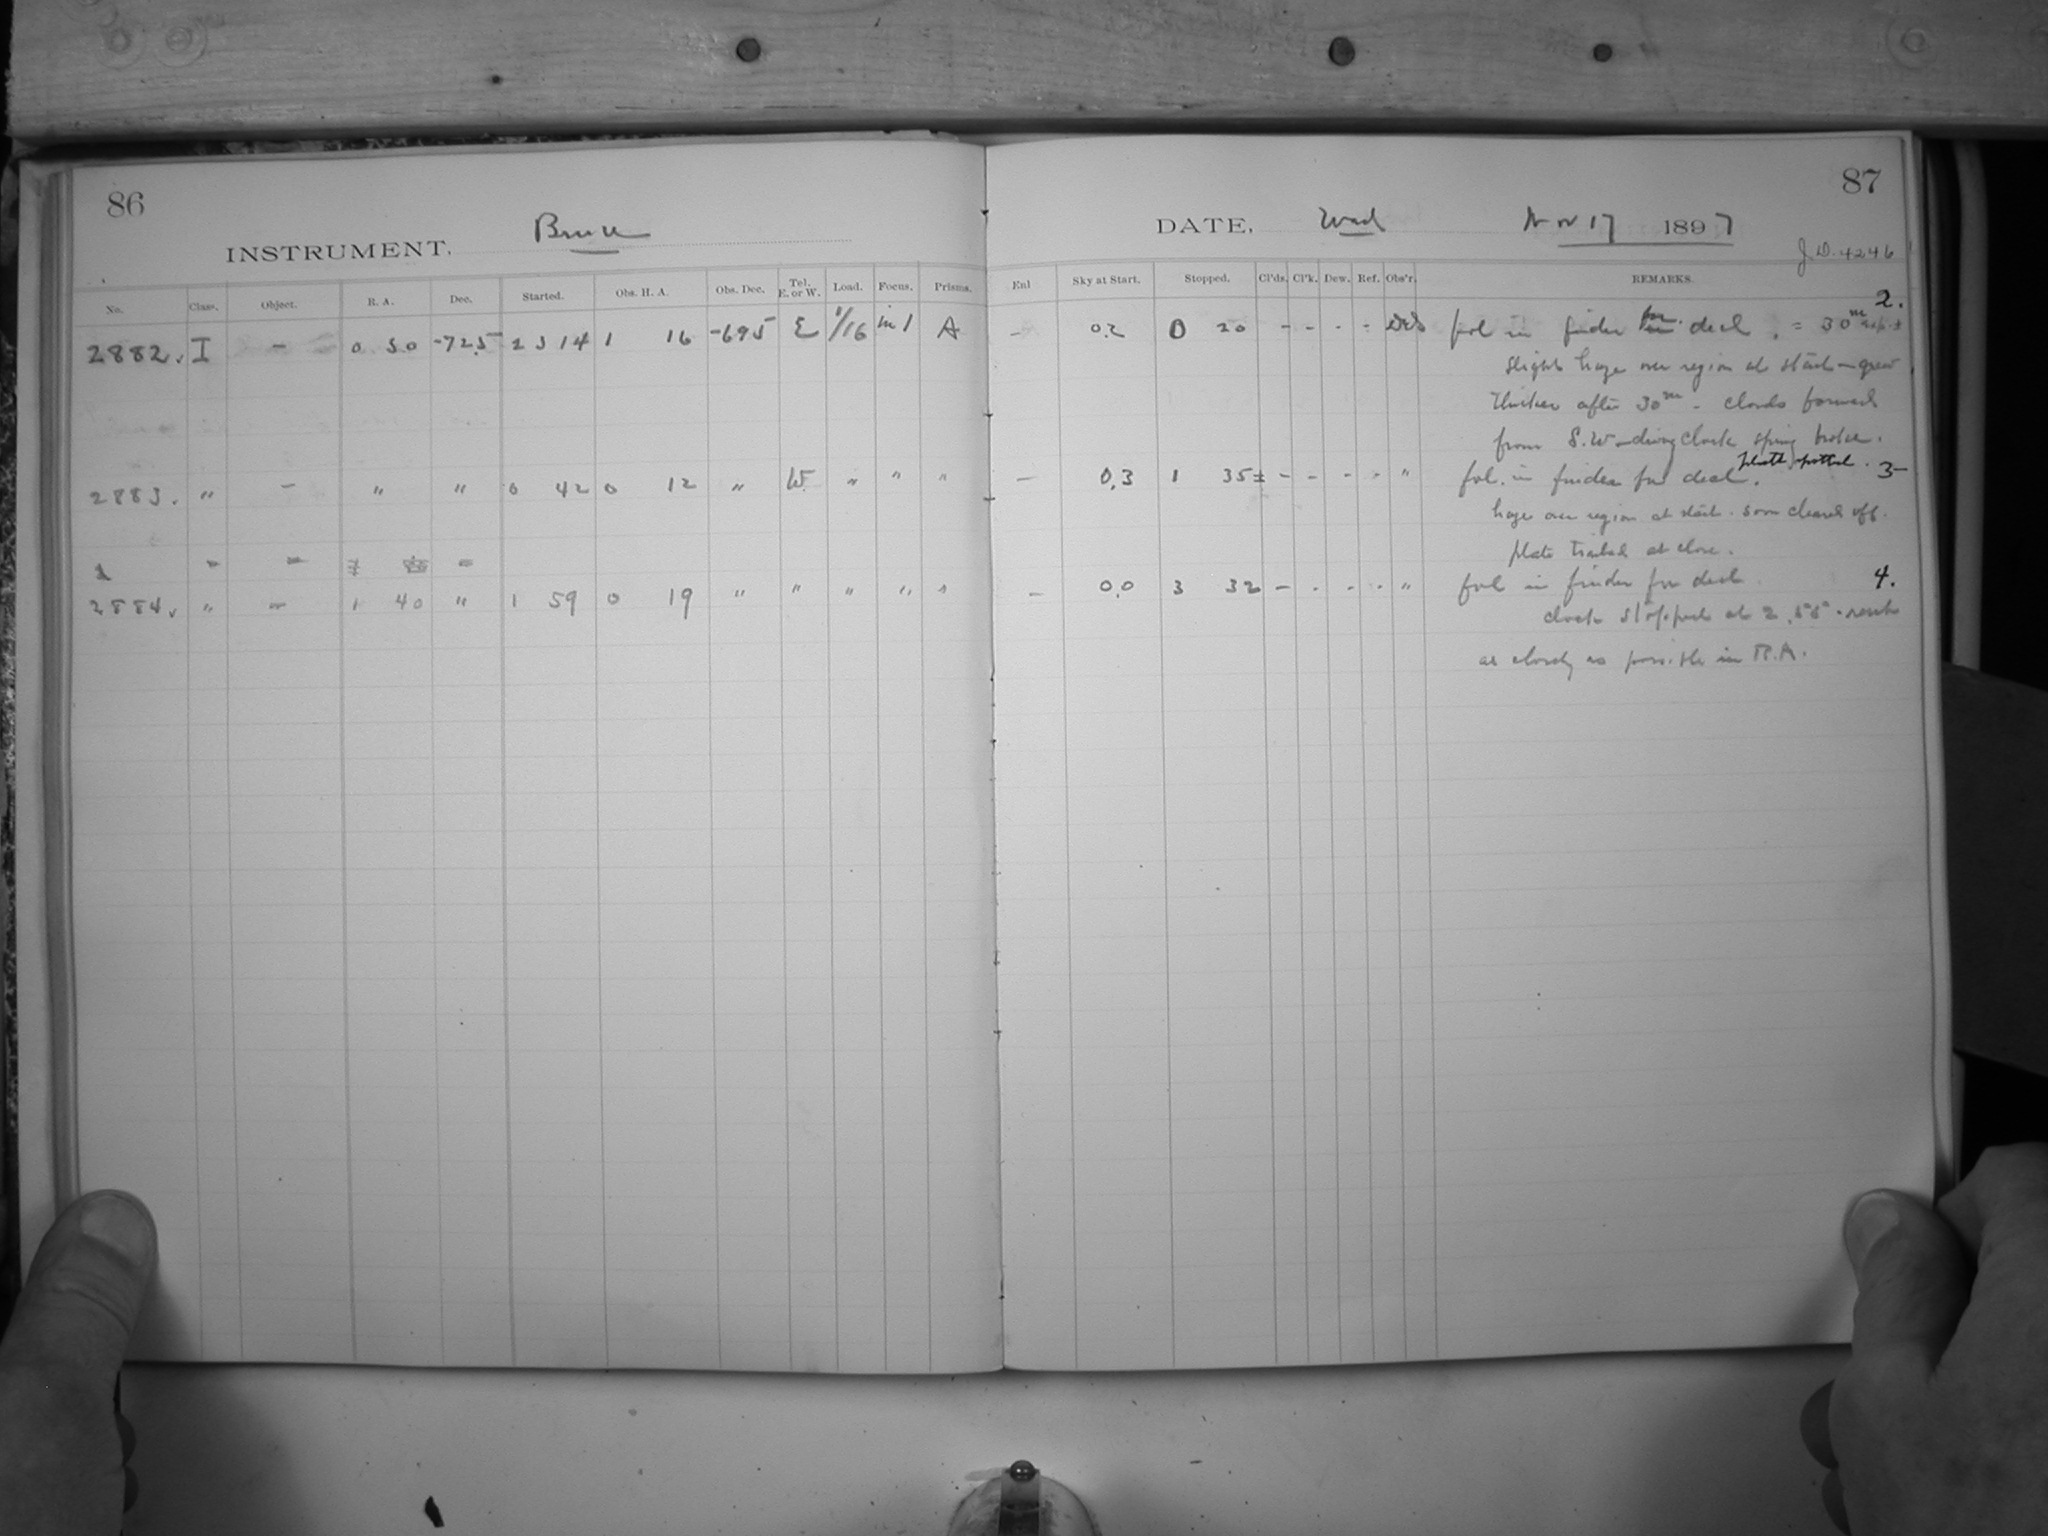 86
INSTRUMENT, Bruce
No. Class. Object. R. A. Dec. Started. Obs. H. A. Obs. Dec. Tel. E. or W. Load. Focus. Prisms.
2882. I - 0 50 -72.5 23 14 1 16 -69.5 E 1/16 in 1 A
2883. " - " " 0 42 0 12 " W. " " "
2884. " - 1 40 " 1 59 0 19 " " " " "
87
DATE, Wed Nov 17 1897
J.D. 4246
Enl Sky at Start. Stopped. Cl'ds. Cl'k. Dew. Ref. Obs'r. REMARKS.
2.
- 0.2 0 20 - - - - fol in finder for decl. = 30m
slight haze over region at start - grew
thicker after 30m - clouds formed
from S.W - driving clock spring broke.
- 0.3 1 35± - - - - " fol. in finder for decl. 3-
haze over region at start. soon cleared off.
plate trailed at close.
- 0.0 3 32 - - - - " fol in finder for decl 4.
clock stopped at 2.55 - reset
as closely as possible in R.A.